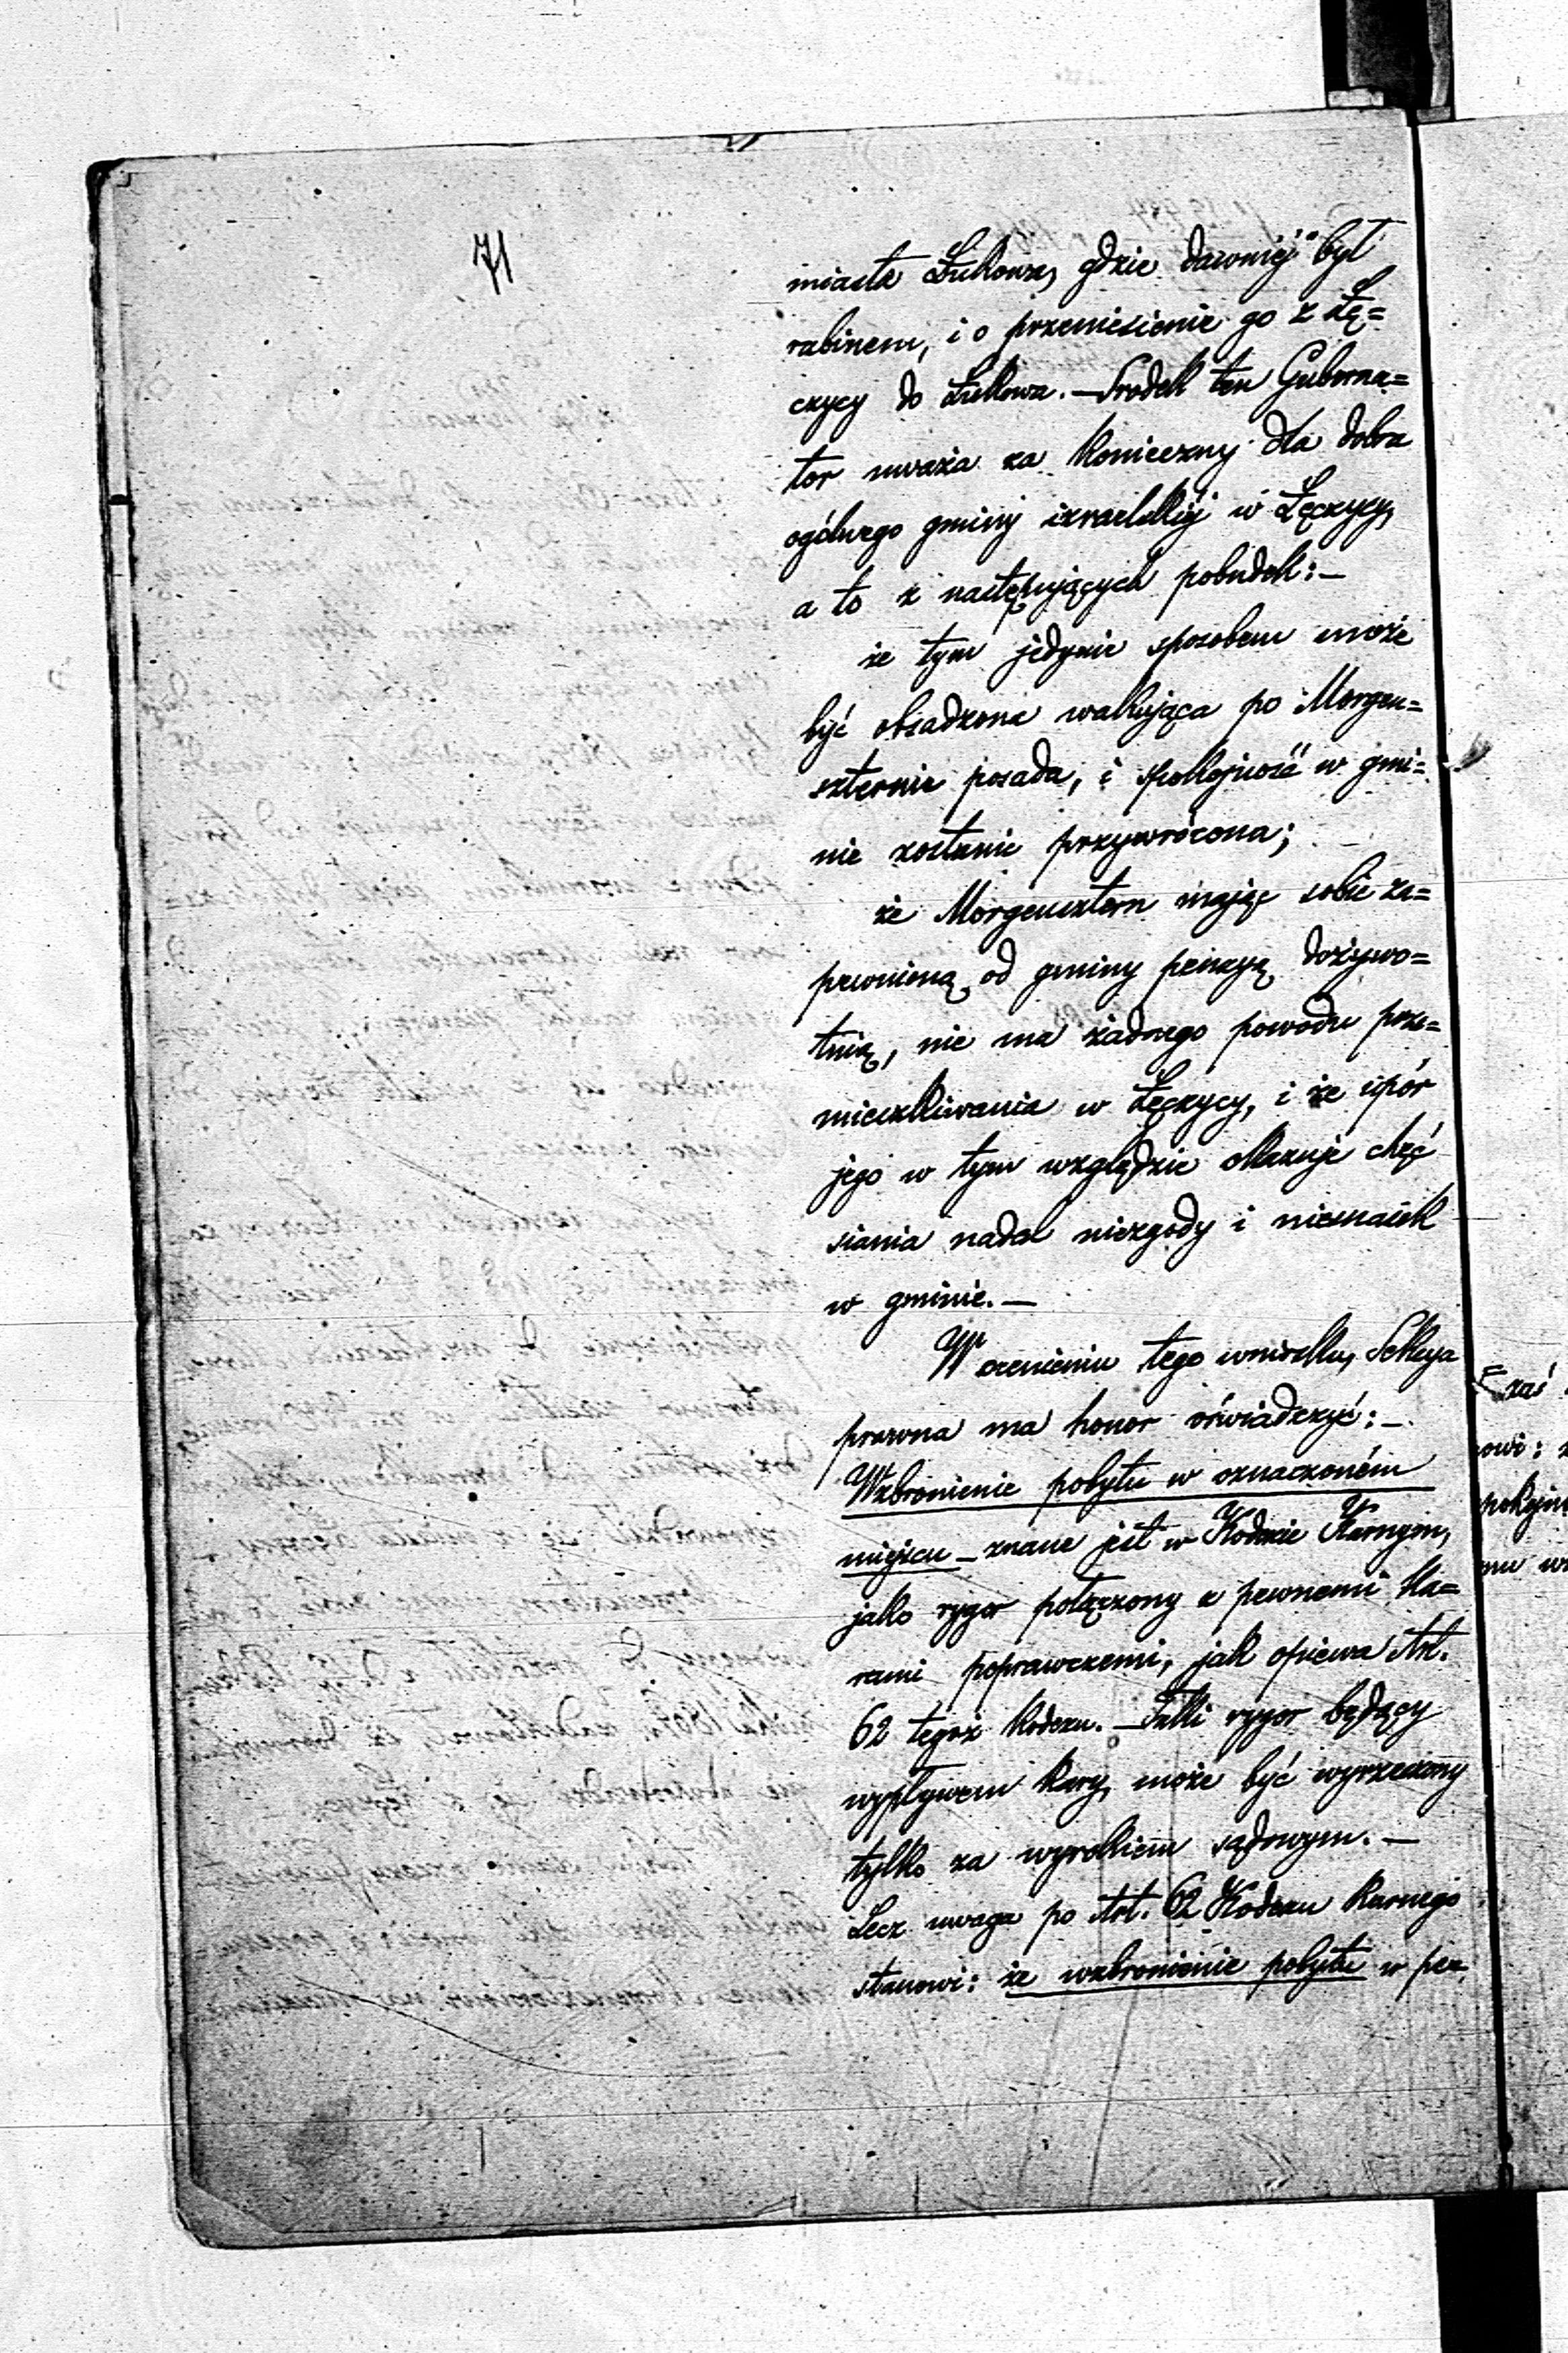 71
miasta Łukowa, gdzie dawniéj był
rabinem, i o przeniesienie go z Łę=
czycy do Łukowa. — Środek ten Guberna=
tor uważa za konieczny dla dobra
ogólnego gminy izraelskiéj w Łęczycy,
a to z następujących pobudek: —
że tym jedynie sposobem może
być obsadzona wakująca po Morgen=
szternie posada, i spokojność w gmi=
nie zostanie przywrócona;
że Morgensztern mając sobie za=
pewnioną od gminy pensyą dożywo=
tnią, nie ma żadnego powodu prze=
mieszkiwania w Łęczycy, i że upór
jego w tym względzie okazuje chęć
siania nadal niezgody i niesnasek
w gminie. —
W ocenieniu tego wniosku, Sekcya
prawna ma honor oświadczyć: —
Wzbronienie pobytu w oznaczoném
miejscu — znane jest w Kodexie Karnym,
jako rygor połączony z pewnemi ka=
rami poprawczemi, jak opiewa Art.
62 tegoż Kodexu. — Taki rygor będący
wypływem kary, może być wyrzeczony
tylko za wyrokiem sądowym. —
Lecz uwaga po Art. 62 Kodexu Karnego
stanowi: że wzbronienie pobytu w pew
zaś